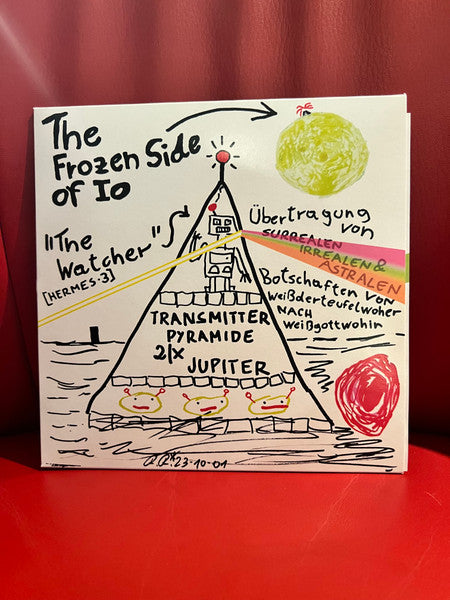 The
Frozen Side
of Io
"The
Watcher"
[HERMES-3]
Übertragung
von
SURREALEN
IRREALEN &
ASTRALEN
Botschaften von
weißderteufelwoher
NACH
weißgottwohin
TRANSMITTER
PYRAMIDE
JUPITER
23-10-01